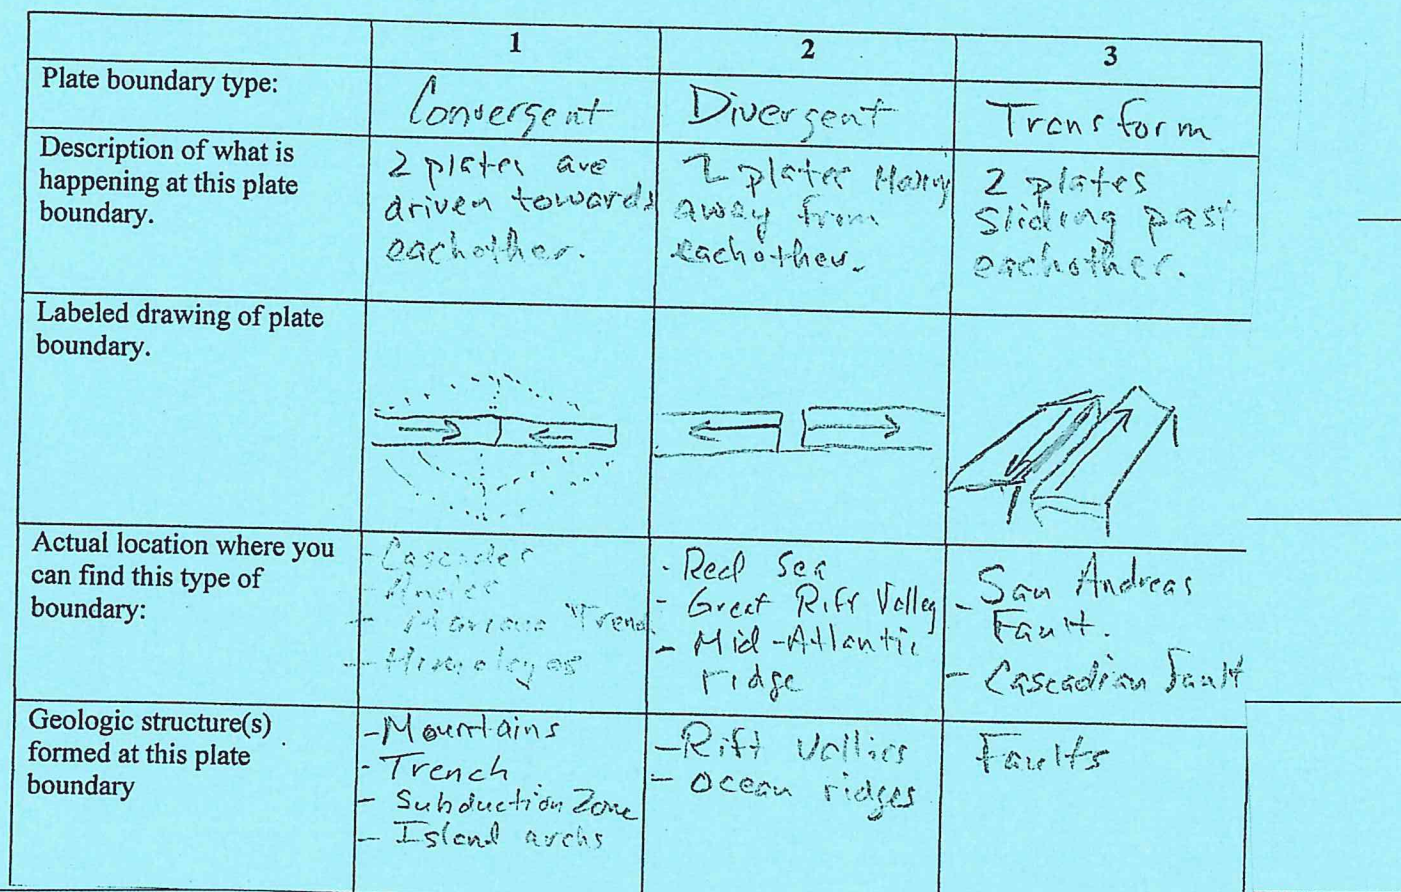 1 2 3
Plate boundary type:
Convergent
Divergent
Transform
Description of what is
happening at this plate
boundary.
2 plates are
driven towards
eachother.
2 plates Moving
away from
eachother.
2 plates
Sliding past
eachother.
Labeled drawing of plate
boundary.
Actual location where you
can find this type of
boundary:
- Cascades
- Andes
- Mariana Trench
- Himalayas
- Red Sea
- Great Rift Valley
- Mid-Atlantic
ridge
- San Andreas
Fault.
- Cascadian Fault
Geologic structure(s)
formed at this plate
boundary
- Mountains
- Trench
- Subduction Zone
- Island archs
- Rift Vallies
- Ocean ridges
Faults